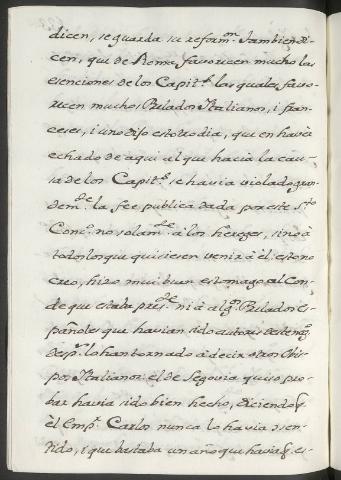 dicen, se guarda su reform.ⁿ Tambien di-
cen, que de Roma favorecen mucho las
esenciones de los Capit.ˢ las quales favo-
recen muchos Prelados Italianos, i fran-
ceses, i uno dijo estotro dia, que en havia
echado de aqui al que hacia la cau-
sa de los Capit.ˢ se havia violado gran-
dem.ᵗᵉ la fee publica dada por este s.ᵗᵒ
Conc.º no solam.ᵗᵉ a los hereges, sino à
todos los que quisiesen venir à èl: esto no
creo, hizo mui buen estomago al Con-
de que estaba pres.ᵗᵉ ni à alg.ˢ Prelados es-
pañoles que havian sido autores
desp.ˢ lo han tornado à decir otros Obis-
pos Italianos: èl de Segovia quiso pro-
bar havia sido bien hecho, diciendo q.
èl Emp.ʳ Carlos nunca lo havia
i que bastaba un año que havia q. es-